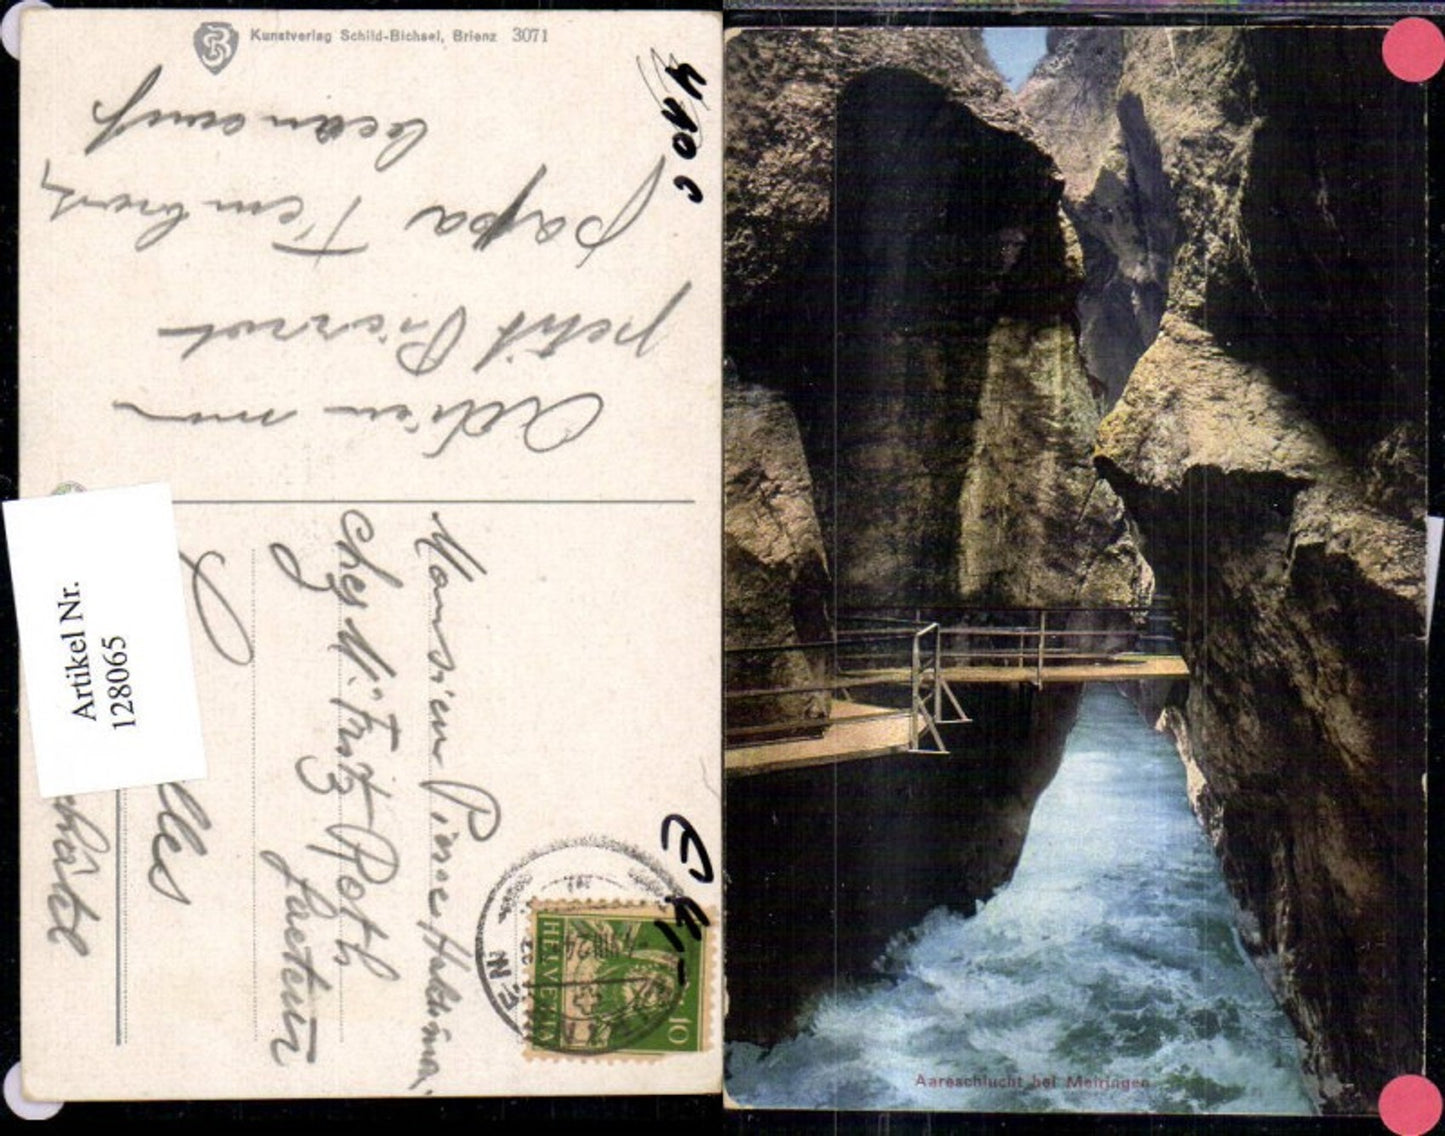 Kunstverlag Schild-Bichsel, Brienz 3071
Adieu mon
petit Pierrot
papa t'embrasse
beaucoup
Monsieur Pierre Haldima
chez M. Fritz Roth
facteur
lles
châtel
HELVETIA
10
24
EN
Artikel Nr.
128065
Aareschlucht bei Meiringen